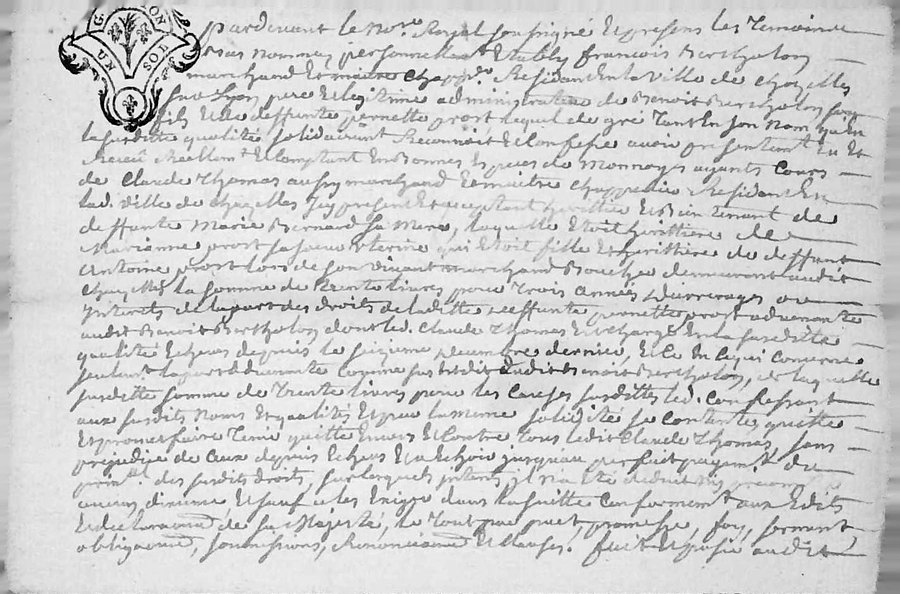 G ON
UN SOL
pardevant le no.re Royal soussigné Et presens les Temoins
bas nommes personnellem.t Etably françois Bertholon
marchand Et maitre chapp.r Residant En la Ville de chazelles
sur Lyon, pere Et legitime administrateur de Benoit Bertholon son
fils Et de deffunte pernette prost lequel de gré Tant En son Nom qu'En
la susditte qualité solidairement Reconnoit Et Confesse avoir presentem.t Eu Et
Receu Reellem.t Et Comptant En Bonnes Especes de Monnoyes ayants Cours
de Claude Thomas aussy marchand Et maitre chappelier Residant En
lad. Ville de chazelles Icy present Et acceptant heritier Et Bien tenant de
deffunte Marie Bernard sa Mere, laquelle Etoit heritiere de
Marianne prost sa soeur Uterine qui Etoit fille Et heritiere de deffunt
Antoine prost lors de son vivant marchand Boucher demeurant audit
chazelles la somme de Trente livres pour Trois années d'arrerages ou
Interets de la part des droits de laditte deffunte pernette prost advenante
audit Benoit Bertholon dont led. Claude Thomas Est chargé En la susditte
qualité Echeus depuis le seizieme decembre dernier, Et Ce En Ce qui Concerne
seulem.t la part advenante comme sus Est dit audit Benoit Bertholon, de laquelle
susditte somme de Trente livres pour les Causes susdittes led. Confessant
aux susdits Noms Et qualités Et par la meme solidité se contente quitte
Et promet faire Tenir quitte Envers Et Contre Tous ledit Claude Thomas, sans
prejudice de Ceux depuis Echeus Et a Echoir jusqu'au parfait payem.t du
prin.al des susdits droits, sur lesquels Interets il n'a Eté deduit ny precompté
aucun dixieme Et sauf a les Exiger dans la suitte Conformement aux Edits
Et declarations de sa Majesté, le Tout par pact, promesse, foy, serment,
obligations, soumissions, Renonciations Et Clauses. fait Et passé audit